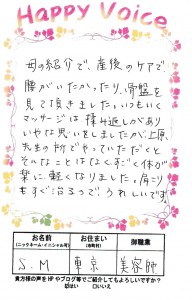 Happy Voice
母の紹介で、産後のケアで
腰がいたかったり、骨盤を
見て頂きました。いつもいく
マッサージは揉み返しがあり
いやな思いをしましたが、上原
先生の所でやっていただくと
そんなことはなくすごく体が
楽に軽くなりました。肩こり
もすぐ治るので、うれしいです。
お名前
(ニックネーム・イニシャル可)
お住まい
(市町村)
御職業
S.M
東京
美容師
貴方様の声をHPやブログ等でご紹介してもよろしいですか?
はい
□いいえ